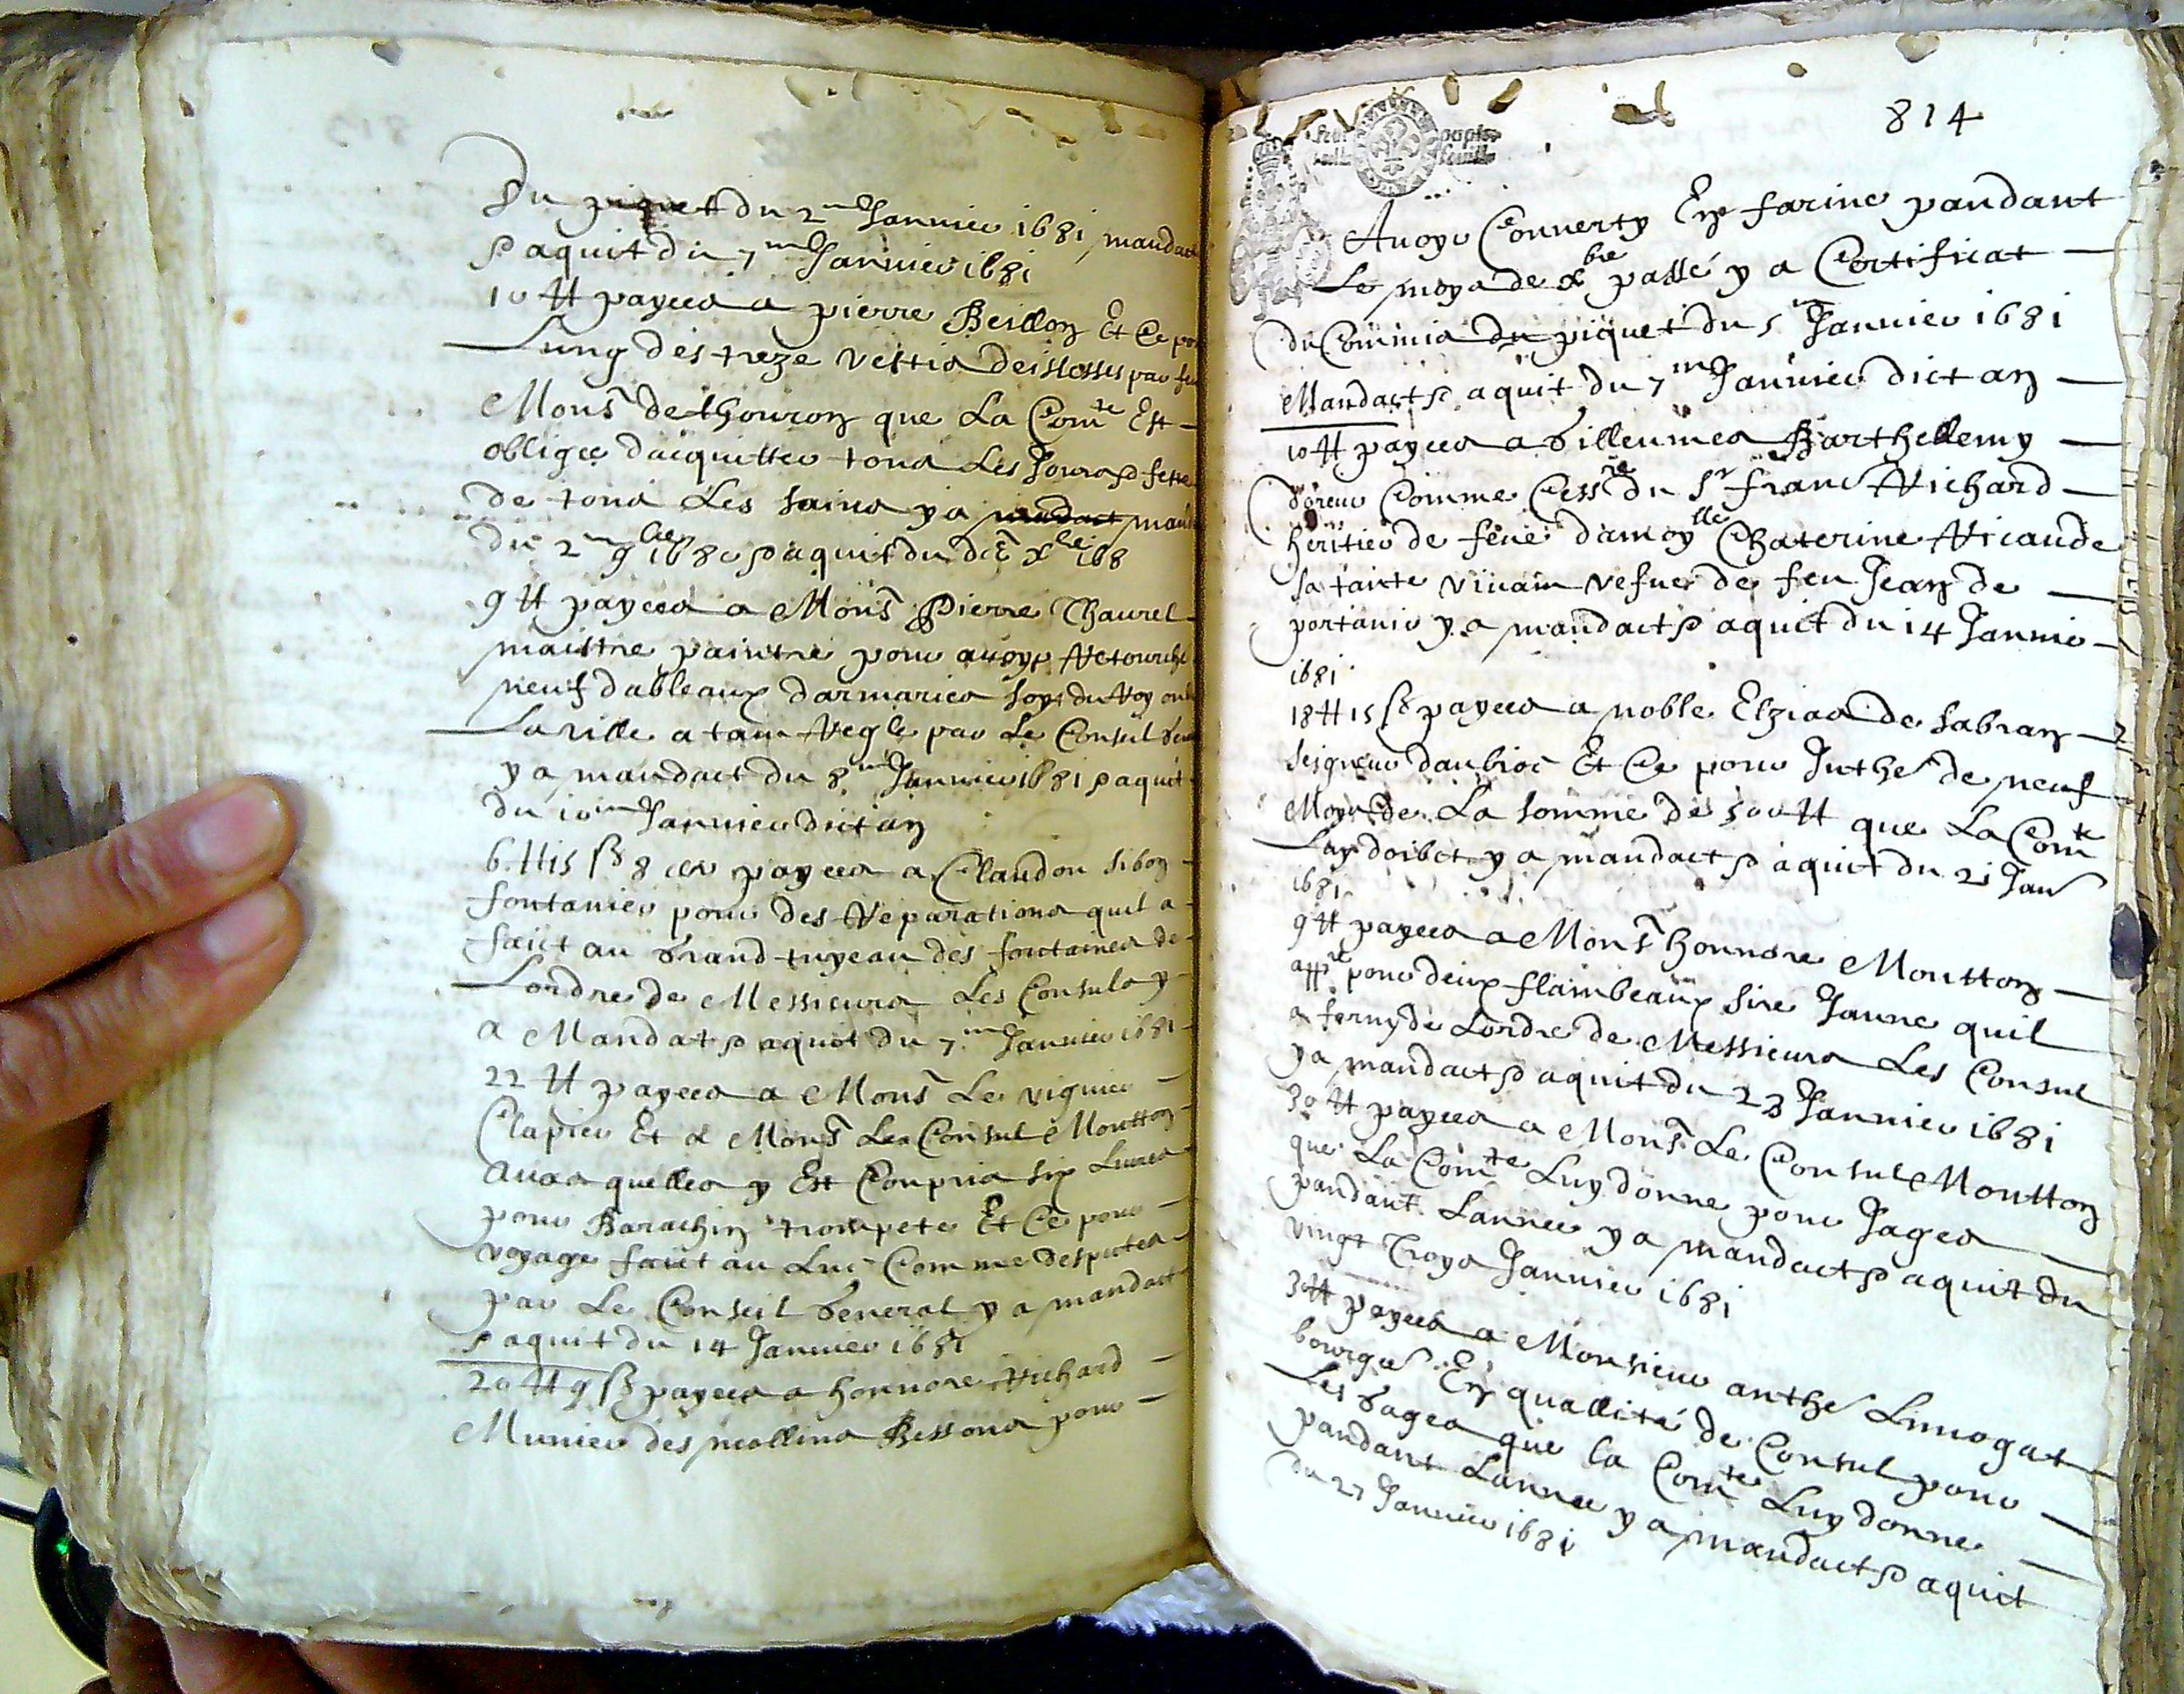 Du piquet du 2me Janvier 1681 mandact
& aquit du 7me Janvier 1681
10 ₶ payees a pierre Beillon Et Ce po
Lung des treze vestis deisLesses par feu
Mons de thouron que La Comte Est
obligee dacquitter tous Les Jours & feste
de tous Les sains ya mandact man
du 2me 9bre 1680 & aquit du dit xbre 168
9 ₶ payees a Mons Pierre Thaurel
maistre paintre pour avoyr Retouche
neuf dableaux darmaries soyt du Roy ou
La ville a tam Regle par Le Consul
y a mandact du 8me Janvier 1681 & aquit
du 10me Janvier dict an
6 ₶ 15 ß 8 payees a Claudou sibon
fontanier pour des Reparations quil a
faict au Grand tuyeau des fontaines de
Lordre de Messieurs Les Consuls y
a Mandat & aquit du 7me Janvier 1681
22 ₶ payees a Mons Le viguier
Clapier Et a Mons Les Consul Moutton
Auas quelles y Est Conpris six Livres
pour Barachin trompete Et Ce pour
voyage faict au Luc Comme desputes
par Le Conseil General y a mandact
& aquit du 14 Janvier 1681
20 ₶ 9 ß payees a honnore Richard
Munier des mollins Bessons pour
814
Avoyr Converty En farine pandant
Le moys de xbre passé y a Certificat
du Commis du piquet du 5 Janvier 1681
Mandact & aquit du 7me Janvier dict an
10 ₶ payees a Gilleumes Barthellemy
doreur Comme Cessre du Sr franc Richard
heritier de feue damoylle Chaterine Ricaude
sa tante vivam vefue de feu Jean de
portanier y a mandact & aquit du 14 Janvie
1681
18 ₶ 15 ß payees a noble Elzias de sabran
seigneur daubioc Et Ce pour Inthes de neuf
Moys de La somme de 500 ₶ que La Comte
Luy doibt y a mandact & aquit du 21 Jan
1681
9 ₶ payees a Mons honnore Moutton
appre pour deux flambeaux sire Jaune quil
a forny de Lordre de Messieurs Les Consul
y a mandact & aquit du 23 Janvier 1681
30 ₶ payees a Mons Le Consul Moutton
que La Comte Luy donne pour Gages
pandant Lannee y a mandact & aquit du
vingt Troys Janvier 1681
30 ₶ payees a Monsieur anthe Limogat
bourgs En quallité de Consul pour
Les Gages que la Comte Luy donne
pandant Lannee y a mandact & aquit
du 27 Janvier 1681